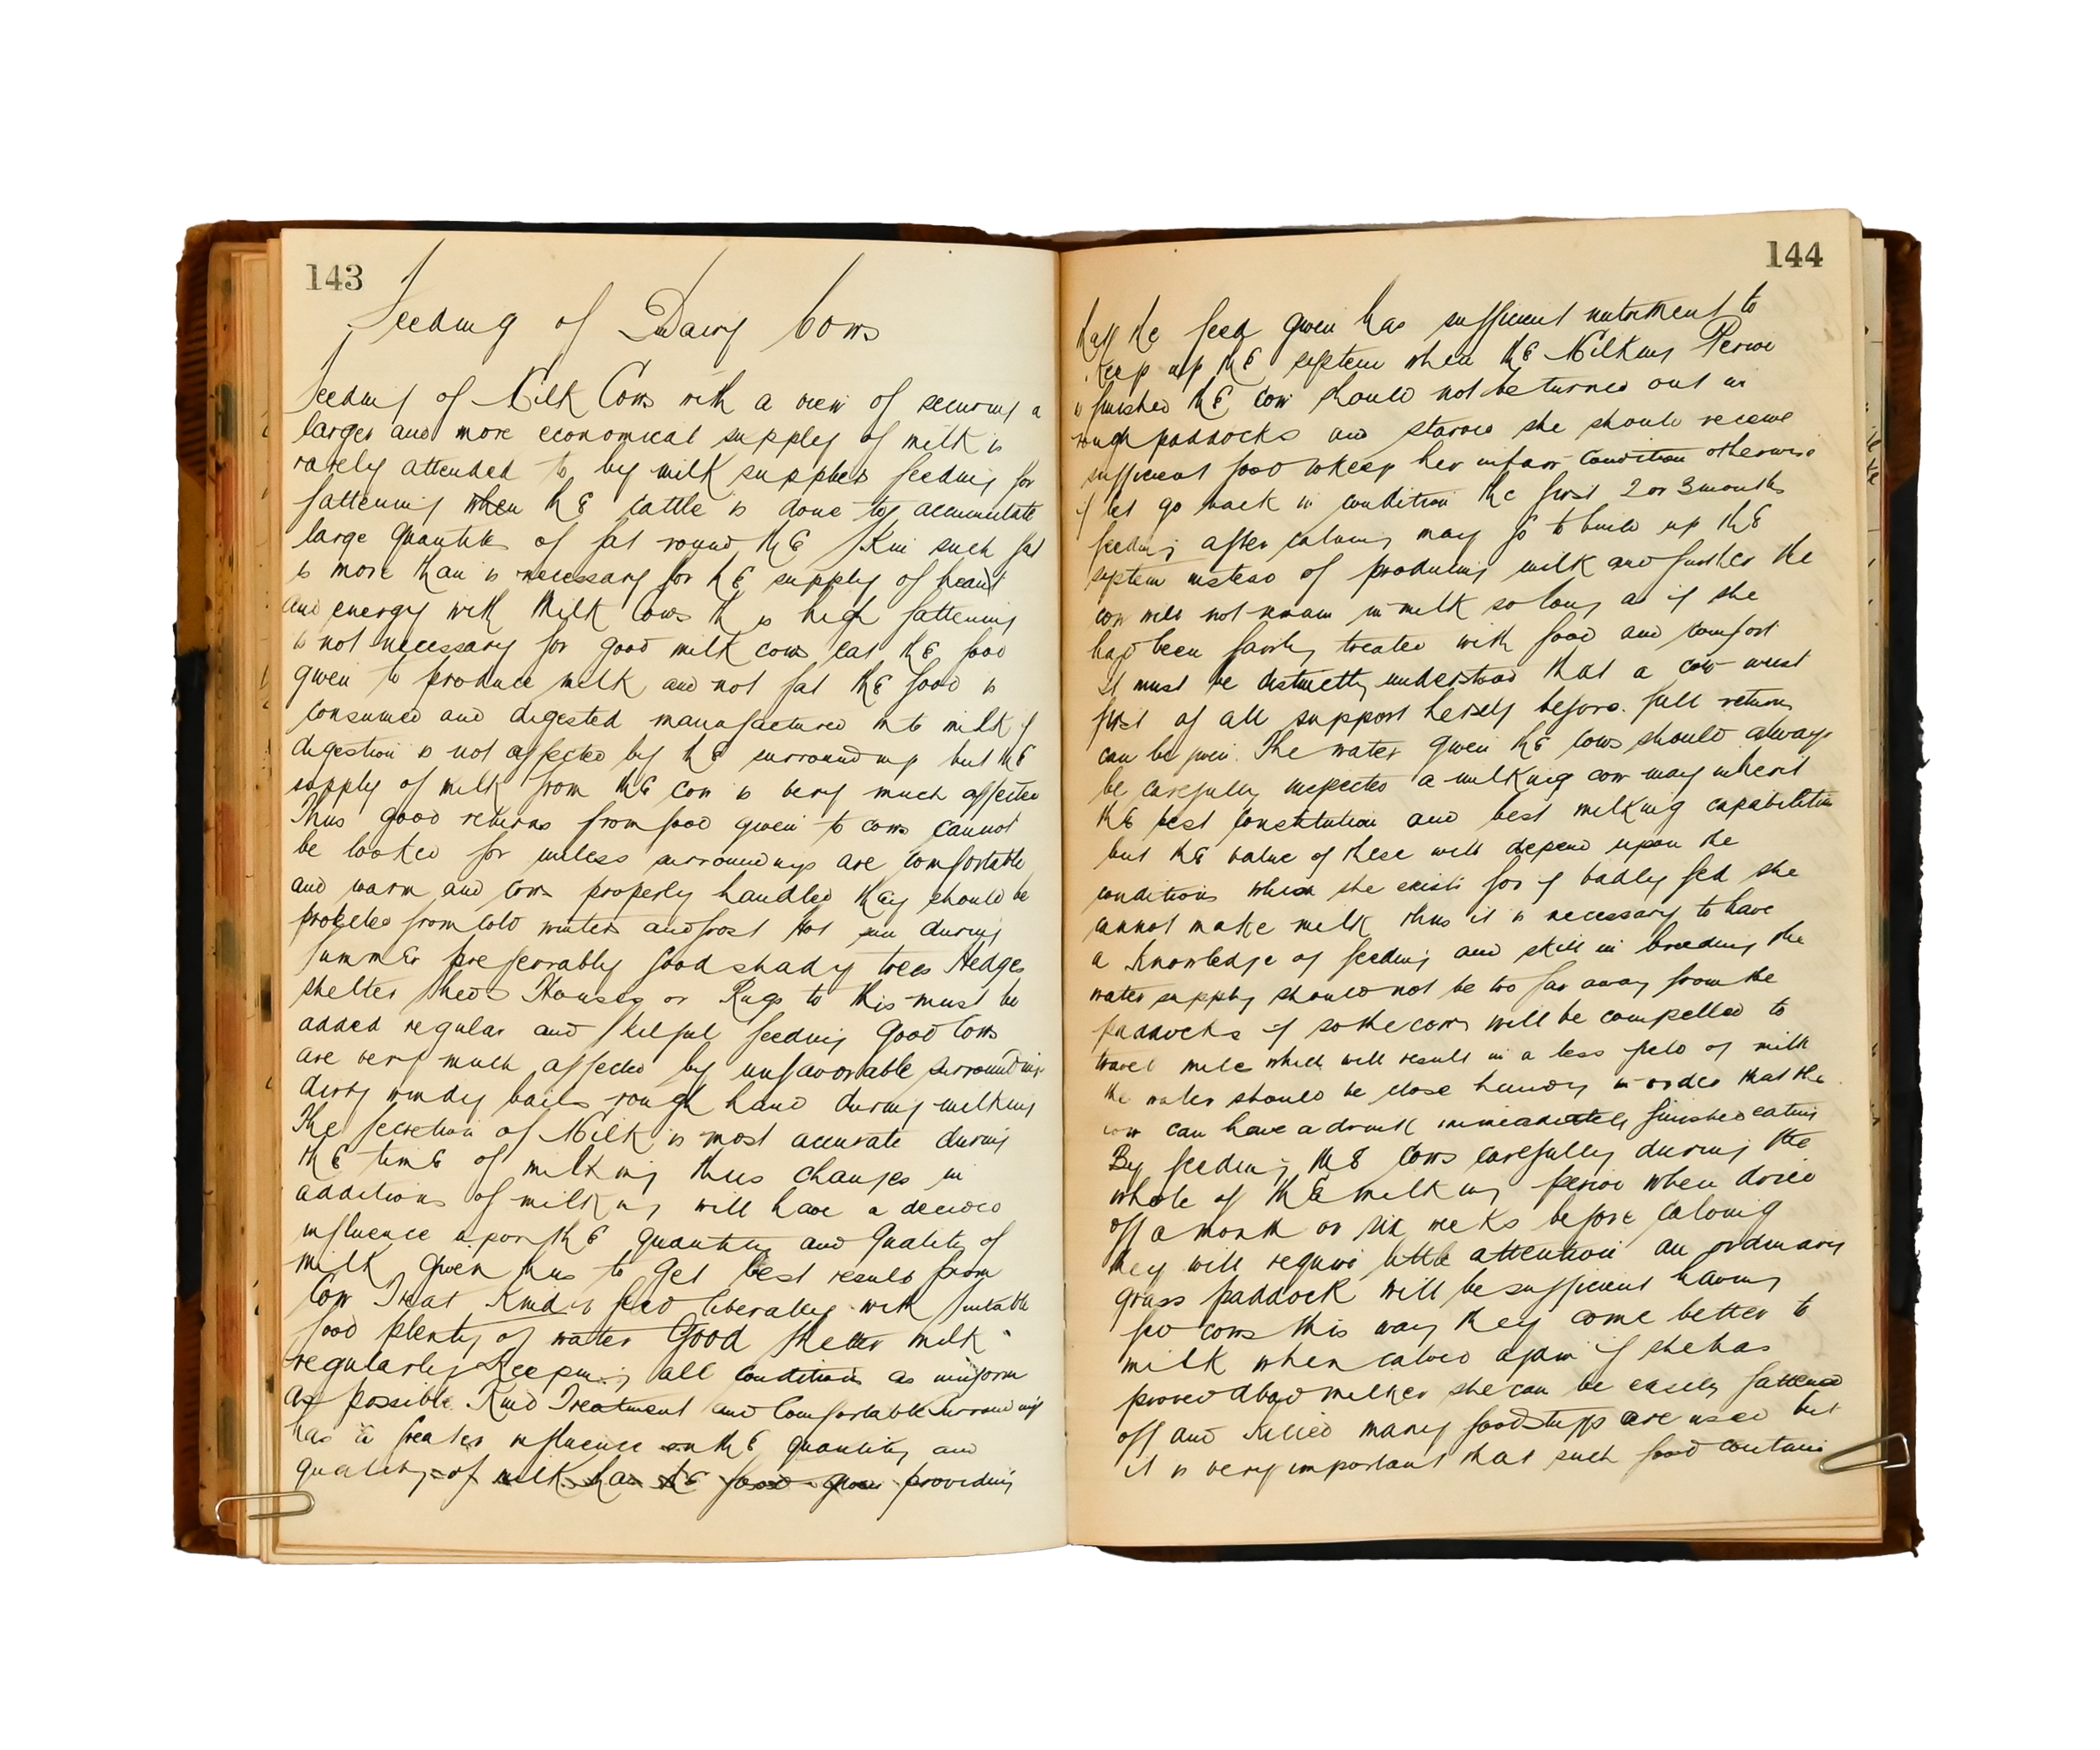 143
Feeding of Dairy Cows
Feeding of Milk Cows with a view of securing a
larger and more economical supply of milk is
rarely attended to by milk suppliers feeding for
fattening when the cattle is done to accumulate
large quantities of fat round the skin such fat
is more than is necessary for the supply of heat
and energy with Milk Cows th is high fattening
is not necessary for good milk cows eat the food
given to produce milk and not fat the food is
consumed and digested manufactured into milk if
digestion is not affected by the surrounding but the
supply of milk from the cow is very much affected
Thus good returns from food given to cows cannot
be looked for unless surroundings are comfortable
and warm and cows properly handled they should be
protected from cold winters and frost Hot sun during
summer preferrably good shady trees Hedges
shelter sheds Houses or Rugs to this must be
added regular and skilful feeding Good Cows
are very much affected by unfavorable surroundings
dirty windy bails rough hand during milking
The secretion of Milk is most accurate during
the time of milking thus changes in
additions of milking will have a decided
influence upon the quantity and Quality of
milk given thus to get best results from
Cow Treat Kindly feed liberally with suitable
food plenty of water Good Shelter milk
regularly Keeping all conditions as uniform
as possible Kind Treatment and Comfortable Surroundings
has a greater influence on the quantity and
quality of milk than the food given providing
144
that the feed given has sufficient nutriment to
keep up the system when the Milking Period
is finished the cow should not be turned out in
rough paddocks and starved she should receive
sufficient food to keep her in fair condition otherwise
if let go back in condition the first 2 or 3 months
feeding after calving may go to build up the
system instead of producing milk and further the
cow will not remain in milk so long as if she
had been fairly treated with food and comfort
It must be distinctly understood that a cow must
first of all support herself before full returns
can be given. The water given the cows should always
be carefully inspected a milking cow may inherit
the best constitution and best milking capabilities
but the value of these will depend upon the
conditions which she exists for if badly fed she
cannot make milk thus it is necessary to have
a Knowledge of feeding and skill in breeding the
water supply should not be too far away from the
paddocks if so the cows will be compelled to
travel mile which will result in a less yield of milk
the water should be close handy in order that the
cow can have a drink immediately finished eating
By feeding the cows carefully during the
whole of the milking period when dried
off a month or six weeks before calving
they will require little attention an ordinary
grass paddock will be sufficient having
fed cows this way they come better to
milk when calved again if she has
proved a bad milker she can be easily fattened
off and killed many food stuffs are used but
it is very important that such food contains